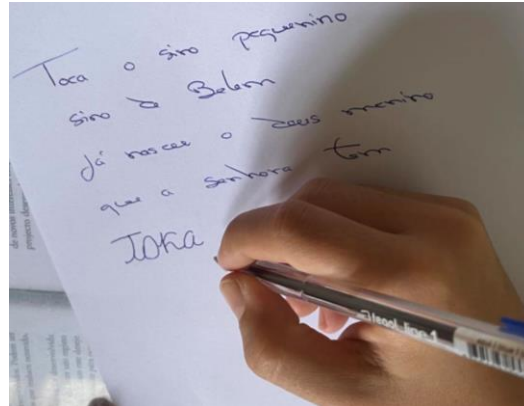 Toca o sino pequenino
sino de Belem
Já nasceu o Deus menino
que a senhora tem
TOKA